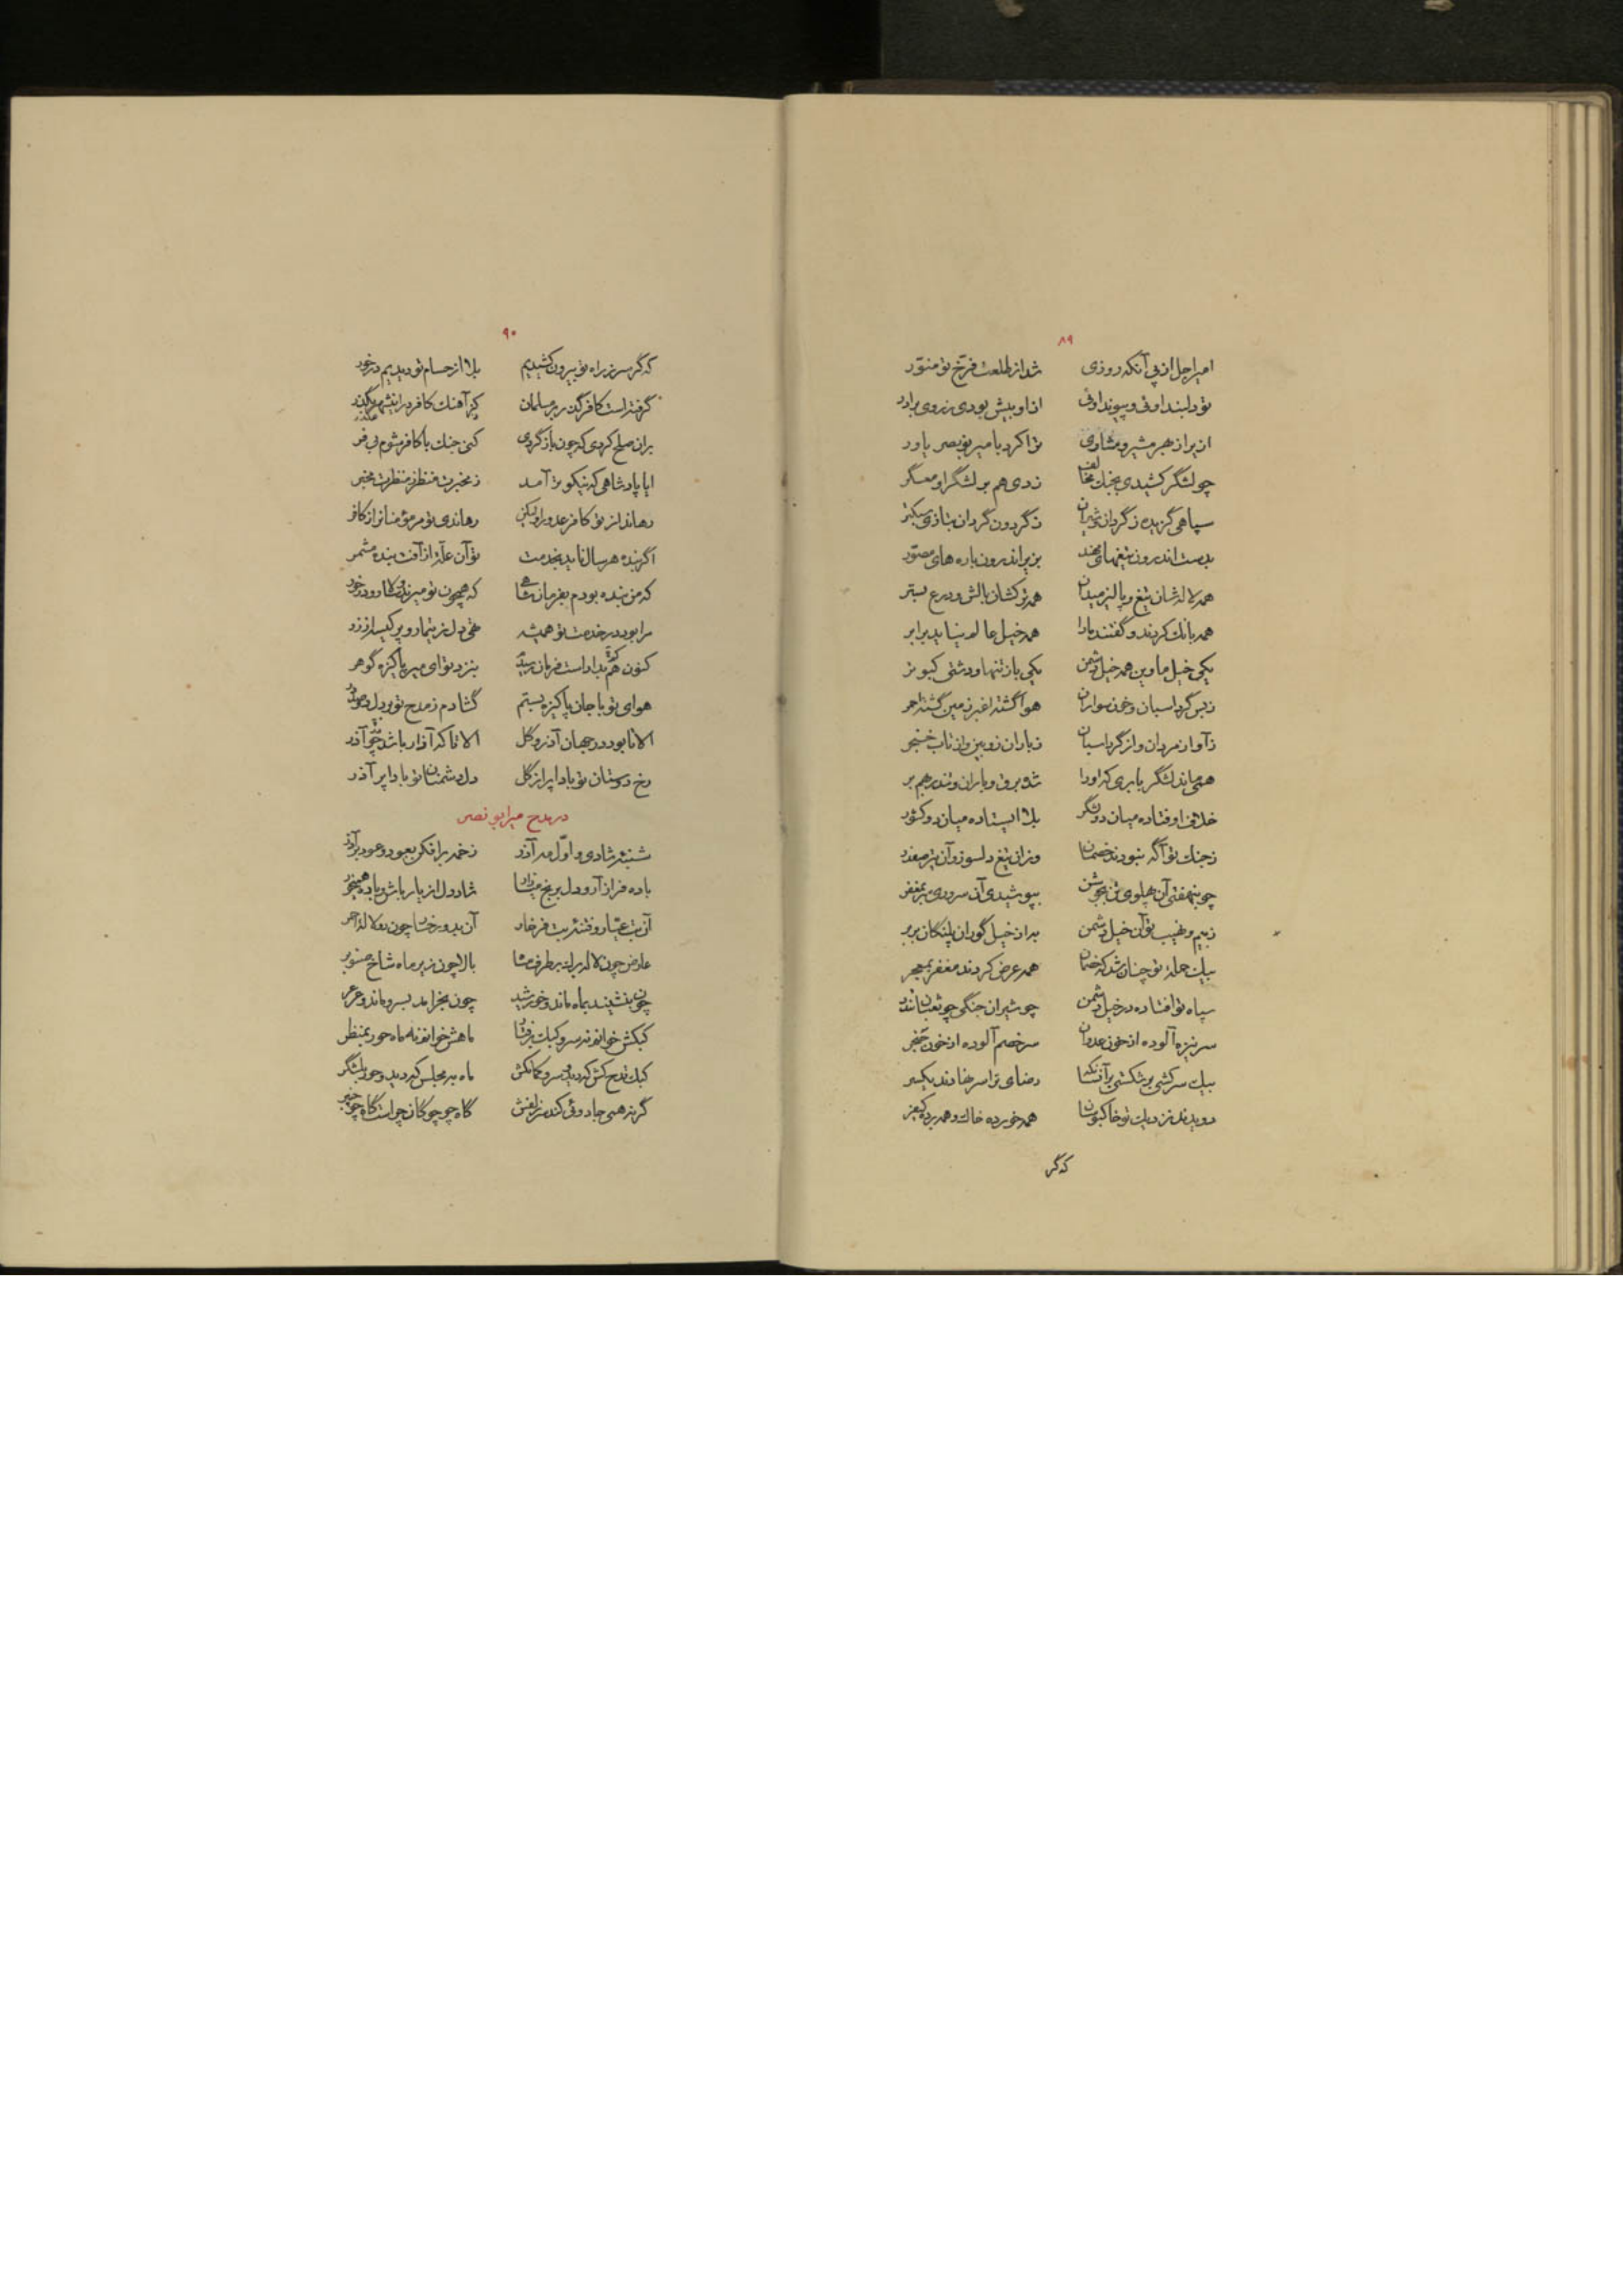 ۸۹
امیر اجل از پی آنکه روزی شد از طلعت فرّخ تو منوّر
تو دلبند اوئی و پیوند اوئی از او بیش بودی ز روی برادر
ازیرا ز هر مشیر و مشاوری ترا کرد با میر بونصر یاور
چو لشگر کشیدی بجنک مخالف زدی هم بر لشگر او معسگر
سپاهی گزیده ز گردان شیران ز گردون گردان بتازی سبکتر
بدست اندرون تیغهای مهند بزیر اندرون باره های مصوّر
همه لاله شان تیغ و پالیز میدان همه ترکشان بالش و درع بستر
همه بانك کردند و گفتند یارا همه خیل عالم نیاید برابر
یکی خیل ما وین همه خیل دشمن یکی باز تنها و دشتی کبوتر
ز بس گرد اسبان و خون سواران هوا گشته اغبر زمین گشته احمر
ز آواز مردان و از گرد اسبان ز باران زوبین و از تاب خنجر
همی ماند لشگر بابری که او را شده برق و باران و تندر هم بر
خلاف اوفتاده میان دو لشگر بلا ایستاده میان دو کشور
ز جنك تو آگه نبودند خصمان وزان تیغ دلسوز وآن تیر صفدر
چو بنهفتی آن پهلوی تن بجوشن بپوشیدی آن سروری سر بمغفر
ز بیم و نهیب تو آن خیل دشمن بد از خیل گوران پلنگان بربر
بیك حمله تو چنان شد که خصمان همه عرض کردند مغفر بمعجر
سپاه تو افتاده در خیل دشمن چو شیران جنگی چو ثعبان اندر
سر نیزه آلوده از خون عدوان سر خصم آلوده از خون خنجر
بیك سر کشی بر شکستی بر آنسان که رضای ترا سر نهادند یکسر
دویدند نزدیك تو خاکبوسان همه خورده خاك و همه برده کیفر
که گر
۹۰
که گر سر ز راه تو بیرون کشیدیم بلا از حسام تو دیدیم در خور
گرفته است کافر گذر بر مسلمان کز آهنك کافر در این شهر بگذر
بران صلح کردی که چون باز گردی کنی جنك با کافر شوم بی فر
ایا پادشاهی که نیکو تر آمد ز مخبرت منظر ز منظرت مخبر
رهاند از تو کافر عدو را ولیکن رهاندی تو مر مؤمنان از کافر
اگر بنده هر سال ناید بخدمت تو آن عله از آفت بنده مشمر
که من بنده بودم بفرمان شاهی که همچون تو میر ندارد
مرا بود در خدمت تو همیشه تهی دل ز تیمار و پر کیسه از زر
کنون هم بداد است فرمان بنزد تو ای میر پاکیزه گوهر
هوای تو با جان پاکیزه بستم گشادم ز مدح تو بر دل در
الا تا بود در جهان آذر و گل الا تا که آزار باشد چو آذر
رخ دوستان تو بادا پر از گل دل دشمنان تو بادا پر آذر
در مدح میر ابو نصر
شنبه شادی و اوّل مه آذر زخمه بر افکن بعود و عود بر آذر
باده فراز آر و دل برنج شاد دل از یار باش و باده همیخور
آن بت عیار و فتنه بت فرخار آن بدو رخسار چون دو لاله احمر
عارض چون لاله بطرف بالا چون زیر ماه شاخ صنوبر
چون بنشیند بماه ماند و خورشید چون بخرامد بسرو ماند و عرعر
کبکش خوانم نه سرو کبك برفتار ماهش خوانم نه ماه حور بمنظر
کبك قدح کش که دید و سرو کمانکش ماه بمجلس که دید و حور بلشگر
گر نه همی جادوئی کند سر زلفش گاه چو چوگان چراست گاه چو چنبر